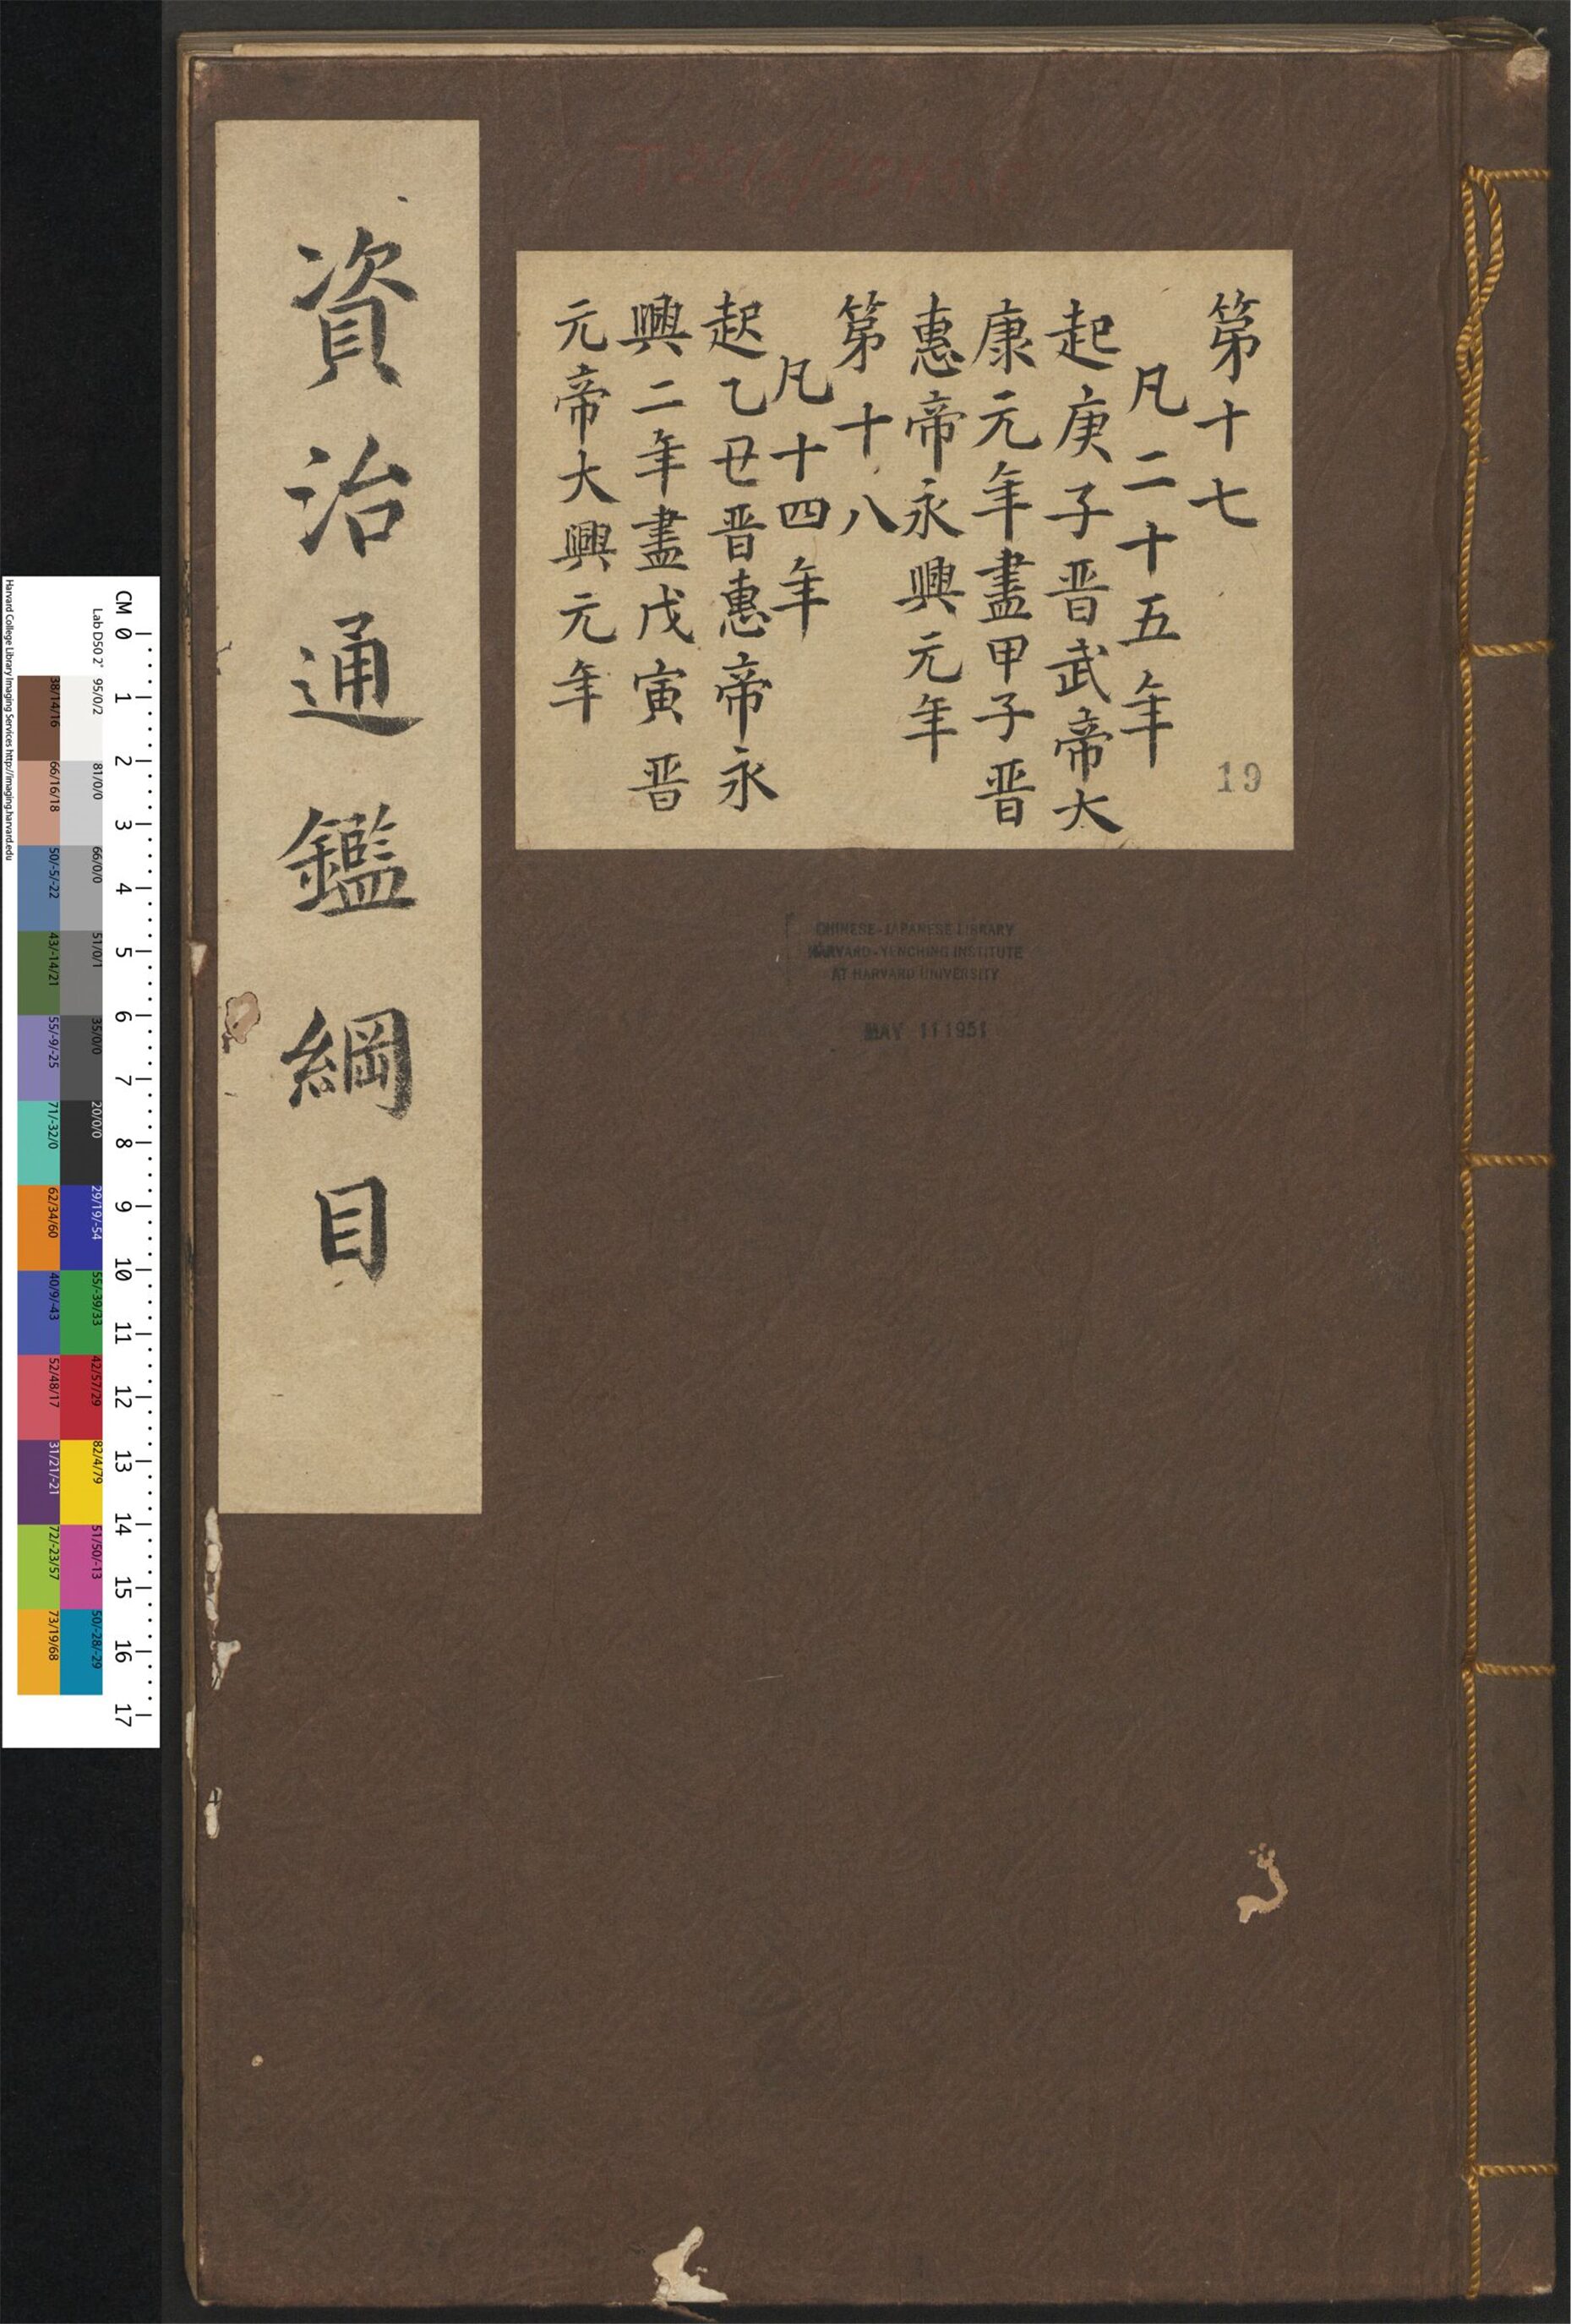 資治通鑑綱目
第十七
凡二十五年
起庚子晋武帝大
康元年盡甲子晋
惠帝永興元年
第十八
凡十四年
起乙丑晋惠帝永
興二年盡戊寅晋
元帝大興元年
19
CHINESE-JAPANESE LIBRARY
HARVARD-YENCHING INSTITUTE
AT HARVARD UNIVERSITY
MAY 11 1951
CM 0 1 2 3 4 5 6 7 8 9 10 11 12 13 14 15 16 17
Lab D50 2° 95/0/2 81/0/0 66/0/0 51/0/1 35/0/0 20/0/0 29/19/-54 55/-39/33 42/57/29 82/4/79 51/50/-13 50/-28/-29
38/14/16 66/16/18 50/-5/-22 43/-14/21 55/-9/-25 71/-32/0 62/34/60 40/9/-43 52/48/17 31/21/-21 72/-23/57 73/19/68
Harvard College Library Imaging Services http://imaging.harvard.edu